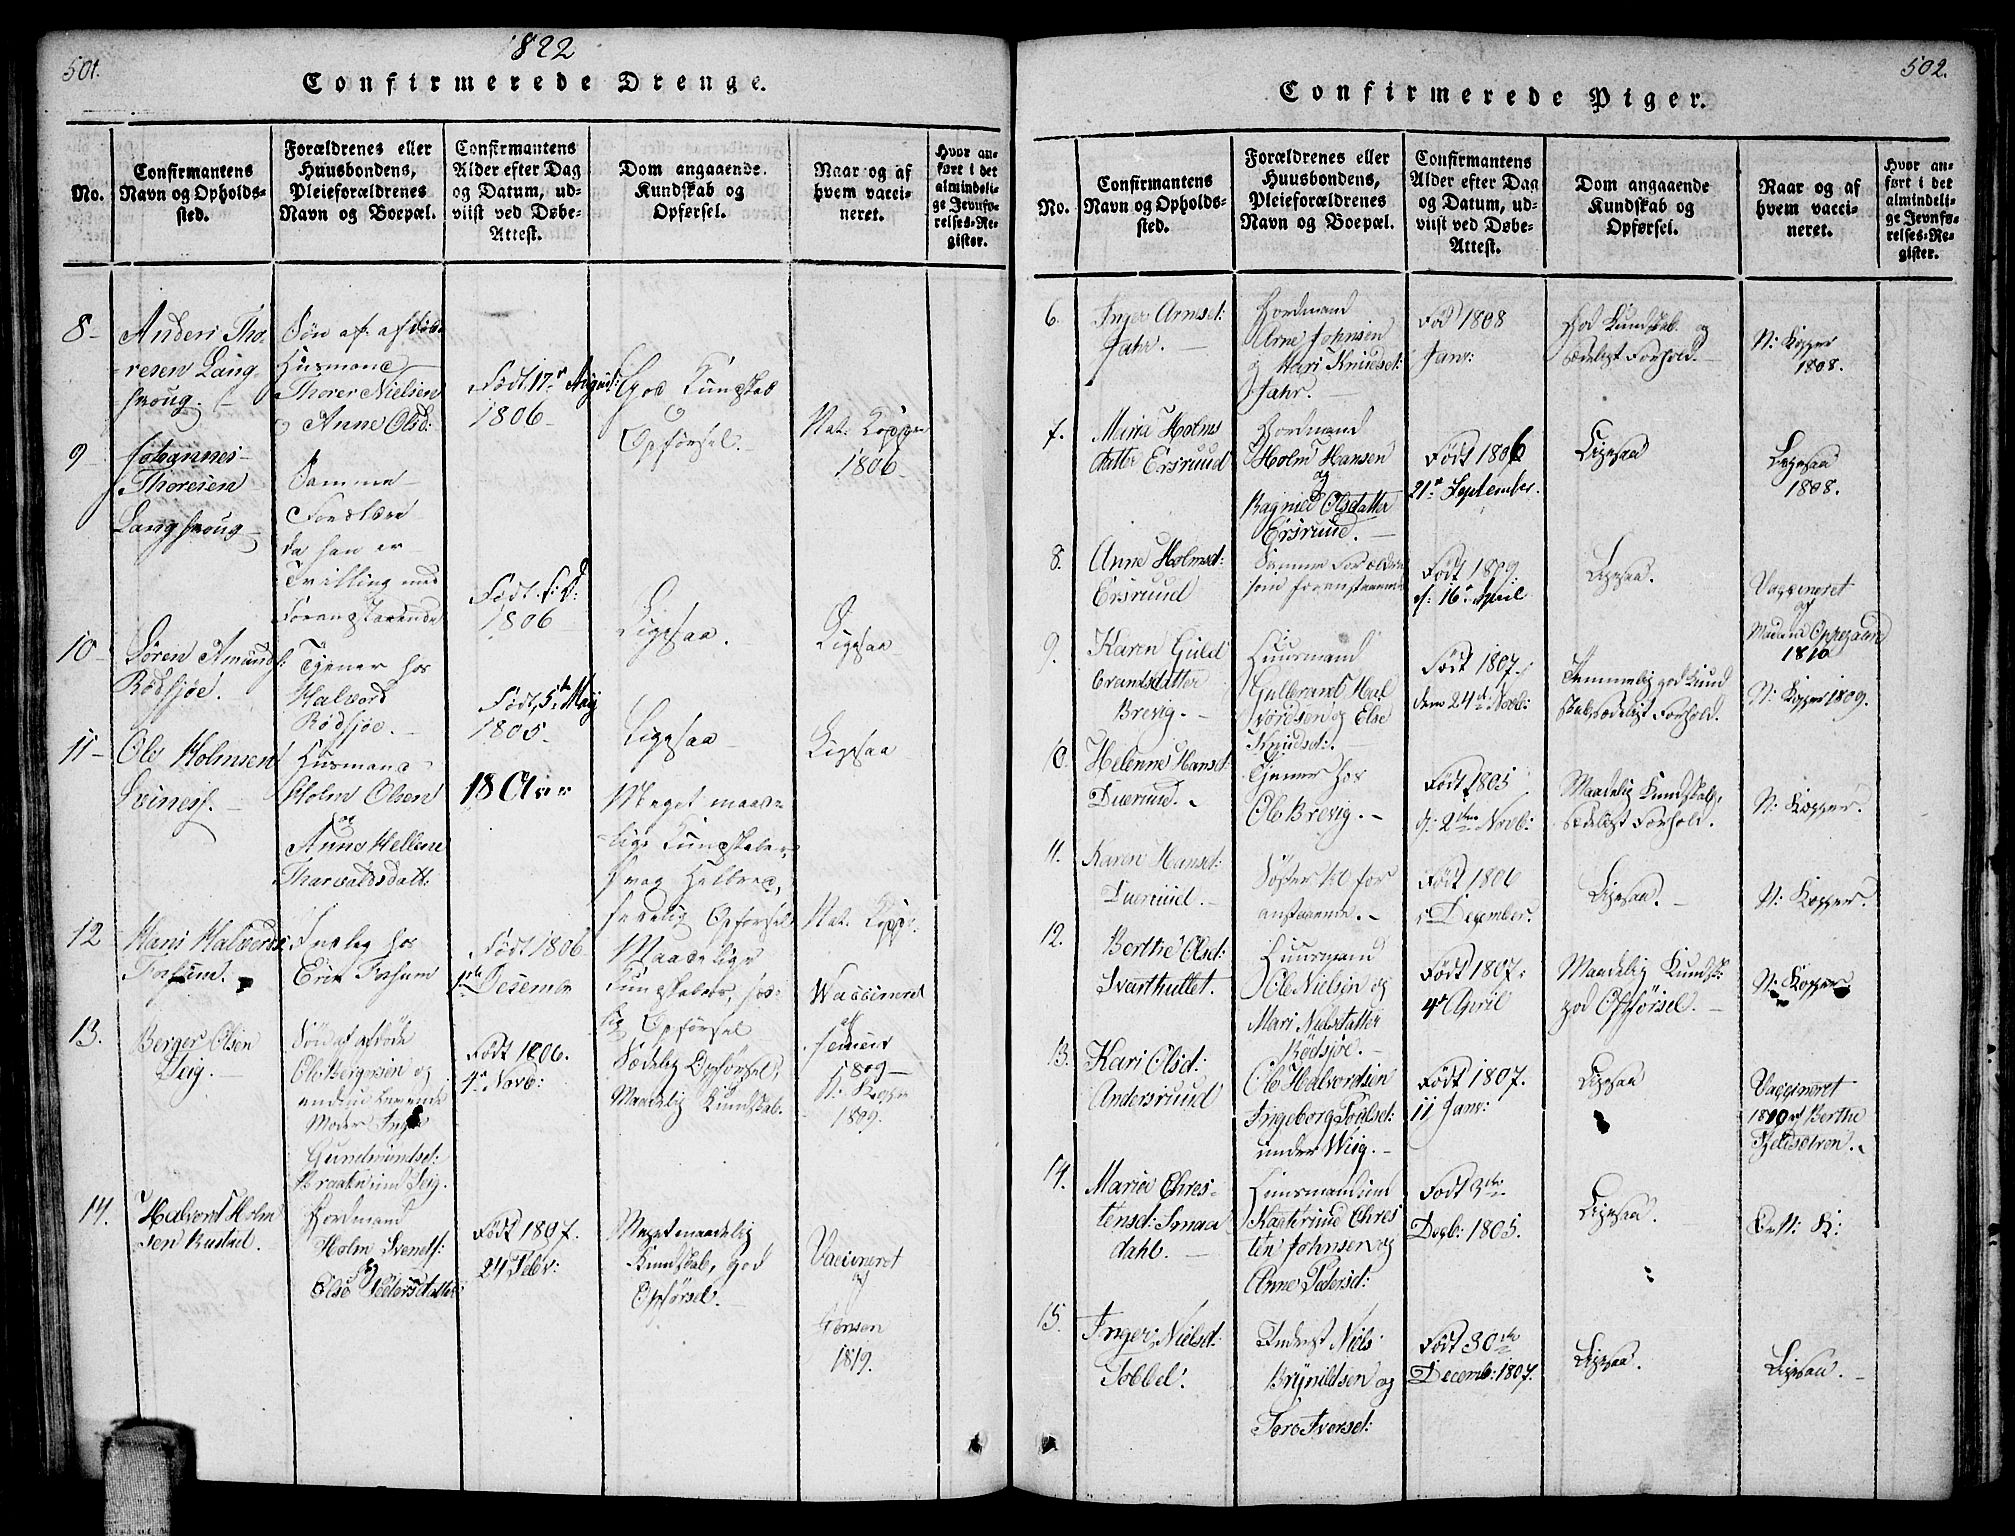 501.
1822
Confirmerede Drenge.
No.
Confirmantens
Navn og Opholds-
sted.
Forældrenes eller
Huusbondens,
Pleieforældrenes
Navn og Boepæl.
Confirmantens
Alder efter Dag
og Datum, ud-
viist ved Døbe-
Attest.
Dom angaaende
Kundskab og
Opførsel.
Naar og af
hvem vacci-
neret.
Hvor an-
ført i det
almindeli-
ge Jevnfø-
relses-Re-
gister.
8-
Anders Tho-
resen Lang-
Søn af afdøde
Husmand
Thorer Nielsen
og Anne Olsd:
Født 17de August:
1806
God Kundskab
Opførsel.
Nat. Kopper
1806
9-
Johannes
Thoresen
Samme
Forældre
da han er
Tvilling med
Foranstaaende
Født s: D:
1806
Ligesaa.
Ligesaa
10-
Søren Amunds:
Rødsjøe.
Tjener hos
Halvord
Rødsjøe.
Født 5te May
1805
Ligesaa
Ligesaa
11-
Ole Holmsen
Husmand
Holm Olsen
og
Anne Hellene
Tharvaldsdatt:
18 Aar
Meget maade-
lige Kundskaber,
svag Helbred,
sædelig Opførsel
Nat. Kopp.
12
Hans Halvords:
Forsum.
Inderst hos
Erik Forsum
Født 1806
Desember
Maadelige
Kundskaber, sæde-
lig Opførsel
Waccineret
af
1809
13.
Berger Olsen
Teig.
Søn af afdøde
Ole Bergersen og
endnu levende
Moder Inge
Gundmundsd:
Braaten und. Teig.
Født 1806.
4de Novb:
Sædelig Opførsel,
Maadelig Kundskab.
N: Kopper
1809.
14.
Halvord Holm
sen Rustad.
Gordmand
Holm Svends:
og
Else Pedersdatter
Født 1807.
24 Febr:
Meget maadelig
Kundskab, god
Opførsel.
Vaccineret
af
Jonsen
1819.
502.
Confirmerede Piger.
No.
Confirmantens
Navn og Opholds-
sted.
Forældrenes eller
Huusbondens,
Pleieforældrenes
Navn og Boepæl.
Confirmantens
Alder efter Dag
og Datum, ud-
viist ved Døbe-
Attest.
Dom angaaende
Kundskab og
Opførsel.
Naar og af
hvem vacci-
neret.
Hvor an-
ført i det
almindeli-
ge Jevnfø-
relses-Re-
gister.
6.
Inger Arnsd:
Jahr.
Gordmand
Arne Johnsen
og Mari Knudsd:
Jahr.
Fød 1808
Janv:
God Kundskab og
sædeligt Forhold.
N: Kopper
1808.
7.
Maria Holms
datter Ersruud
Gordmand
Holm Hansen
og
Ragnild Olsdatter
Ersruud.
Født 1806
21de September.
Ligesaa
Ligesaa
1808.
8.
Anne Holmsd:
Ersruud
Samme Forældre
som foranstaaende
Født 1809.
d: 16de April
Ligesaa.
Vaccineret
af
Madame Oppegaard
1810
9.
Karen Guld
brandsdatter
Brevig.
Huusmand
Gulbrand Hal
vordsen og Else
Knudsd:
Født 1807.
den 24de Novb:
Temmelig god Kund
skab, sædeligt Forhold.
N: Kopper 1809.
10.
Helenne Hansd:
Duerud.
Tjener hos
Ole Brevig.
Født 1805
d: 2den Novb:
Maadelig Kundskab,
sædeligt Forhold.
N: Kopper.
11.
Karen Hansd:
Duerud.
Søster til for
anstaaende.
Født 1806
December.
Ligesaa.
N: Kopper.
12.
Berthe Olsd:
Svarthullet.
Huusmand
Ole Nielsen og
Mari Nielsdatter
Rødsjøe.
Født 1807.
4de April
Maadelig Kundsk:
god Opførsel.
N: Kopper
13.
Kari Olsd:
Andersruud
Ole Halvordsen
Ingeborg Poulsd:
under Wiig.
Født 1807.
11 Janv:
Ligesaa
Vaccineret
1810 af Berthe
14.
Maria Chres-
tensd: Smaa
dahl.
Huusmand
Chres
ten Johnsen og
Anne Pedersd:
Født 3die
Decb: 1805.
Ligesaa.
N: K:
15.
Inger Nielsd:
Tobbel.
Inderst Niels
Brynildsen og
Tore Iversd:
Født 30de
Decemb: 1807.
Ligesaa.
Ligesaa.